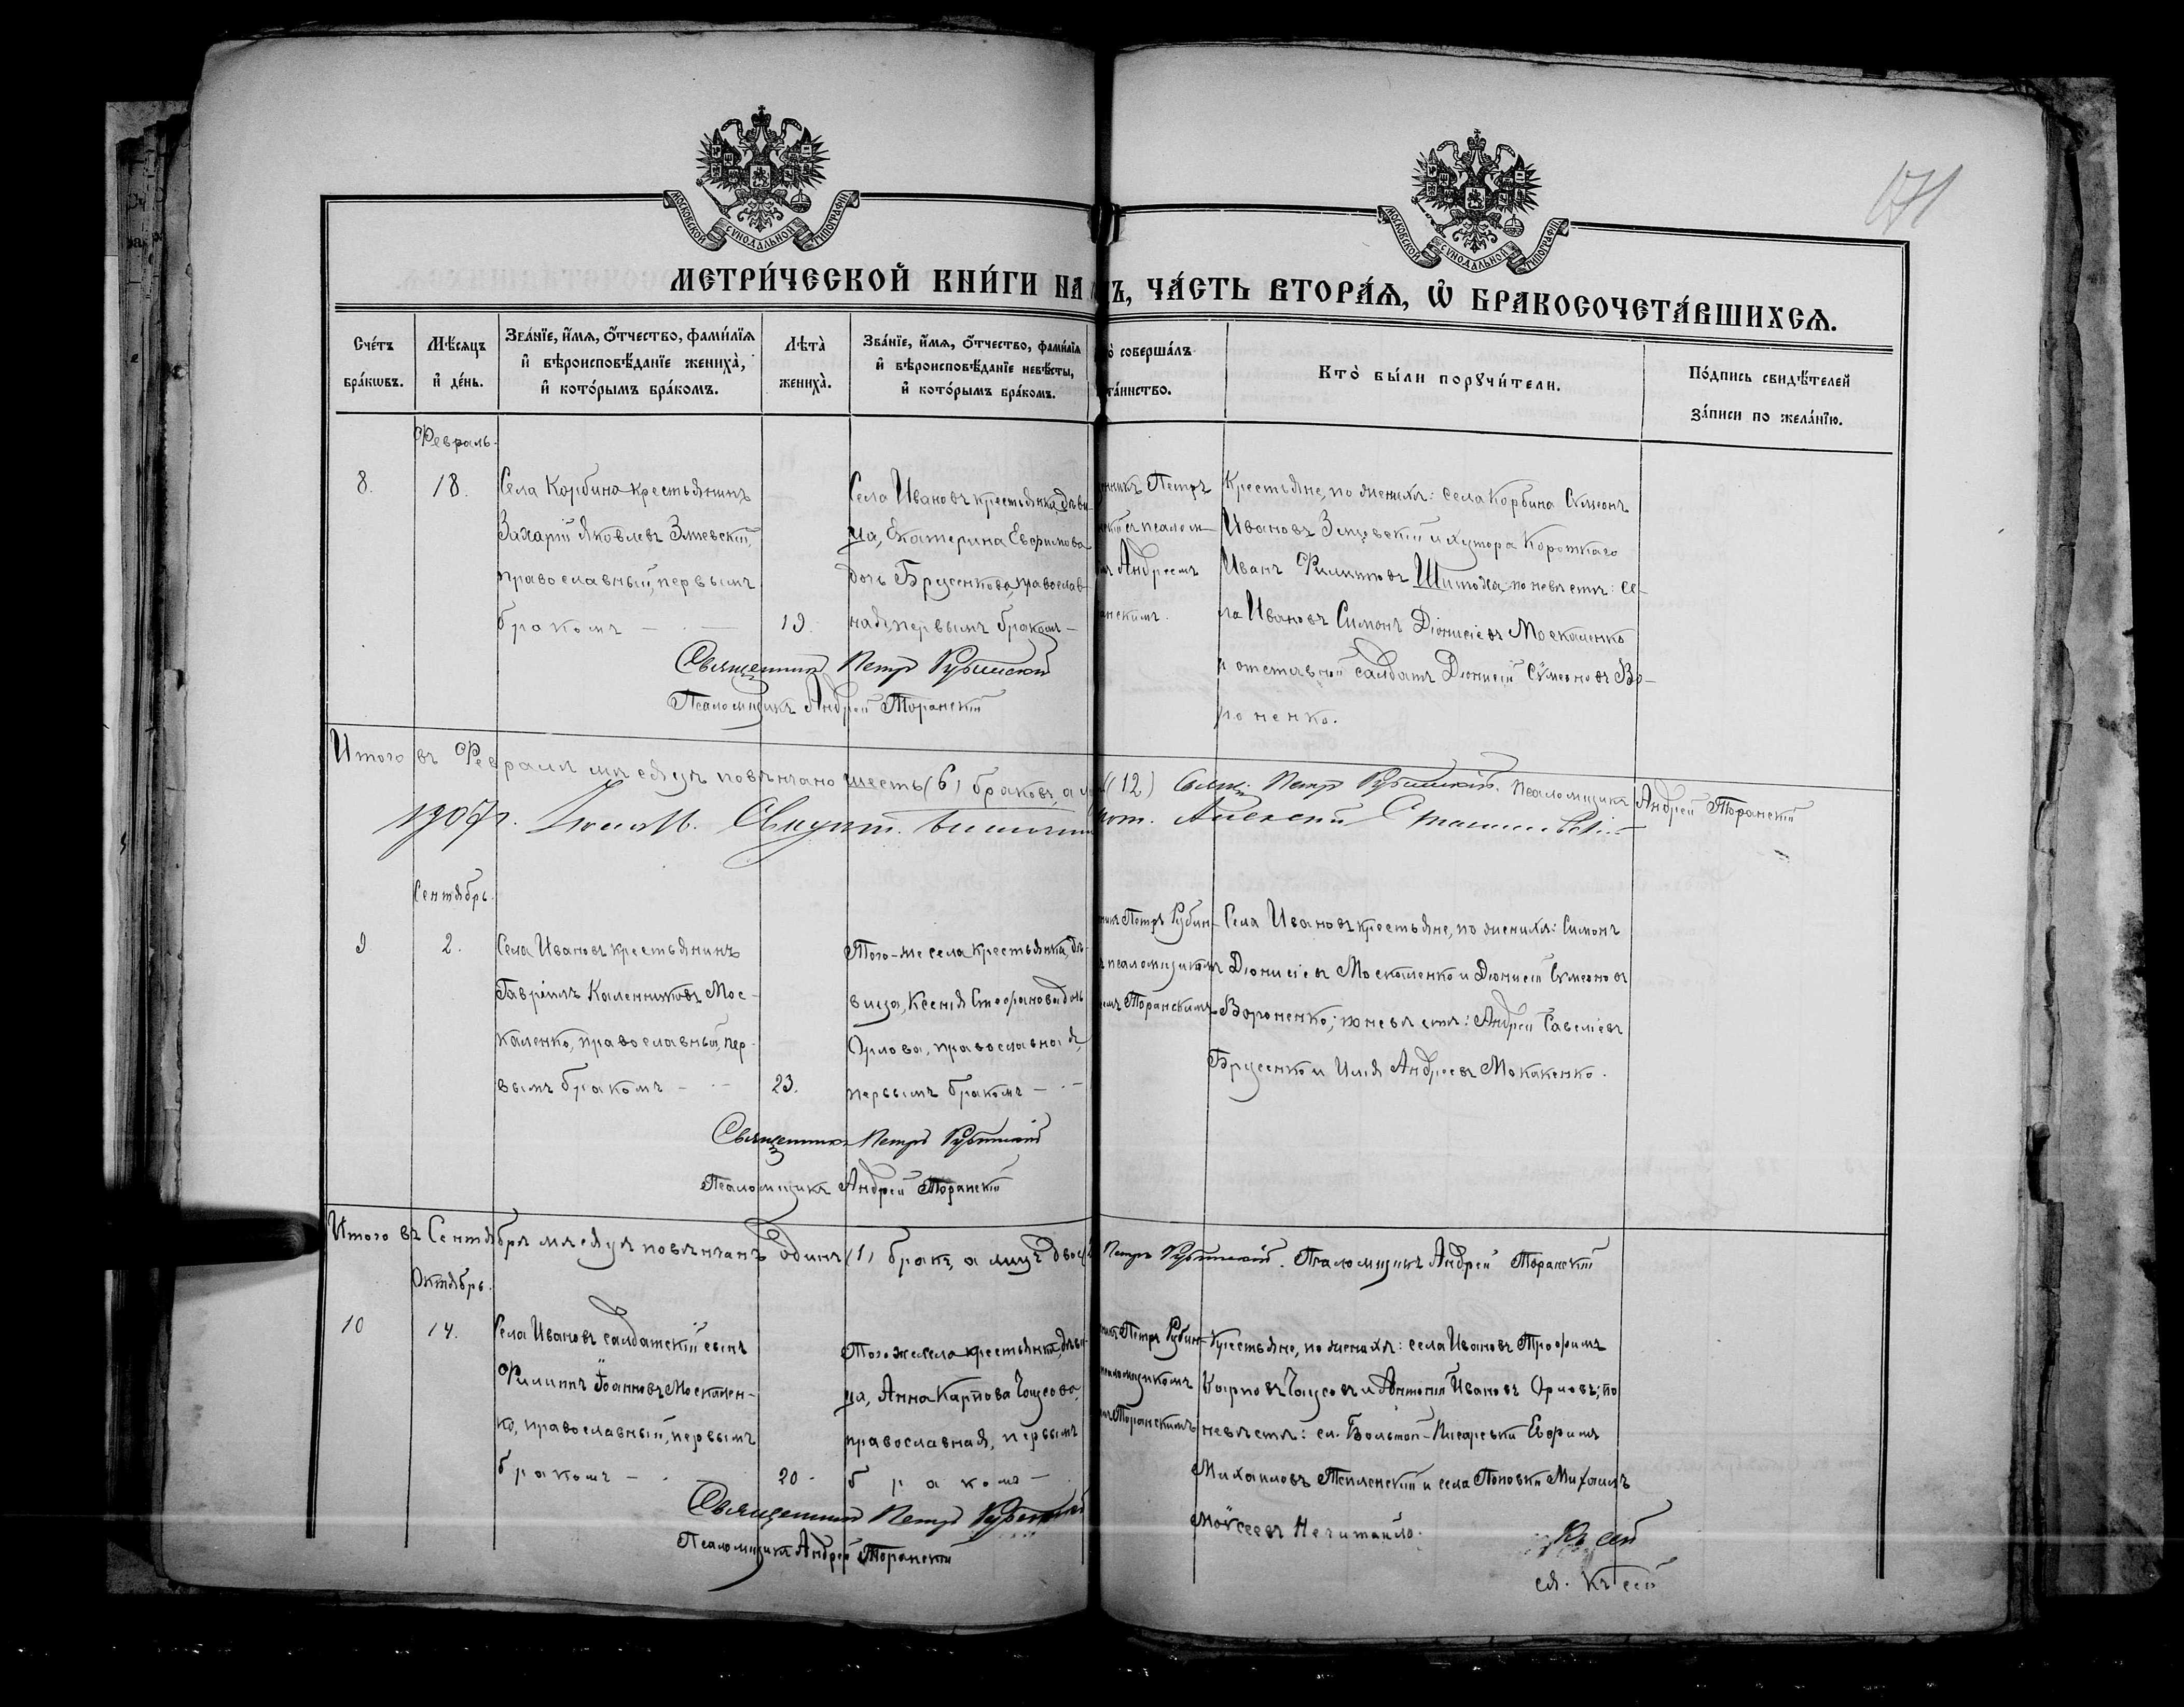 171
МОСКОВСКОЙ СУНОДАЛЬНОЙ ТИПОГРАФІИ
МОСКОВСКОЙ СУНОДАЛЬНОЙ ТИПОГРАФІИ
МЕТРИ́ЧЕСКОЙ КНИ́ГИ НА
Ъ, ЧА́СТЬ ВТОРА́Ѧ, Ѽ БРАКОСОЧЕТА́ВШИХСѦ.
Сче́тъ бра́кωвъ.
Мѣ́сяцъ и҆ де́нь.
Зва́нїе, и҆́мѧ, ѻ҆́тчество, фами́лїѧ
и҆ вѣроисповѣ́данїе жениха̀,
и҆ кото́рымъ бра́комъ.
Лѣта̀ жениха̀.
Зва́нїе, и҆́мѧ, ѻ҆́тчество, фами́лїѧ
и҆ вѣроисповѣ́данїе невѣ́сты,
и҆ кото́рымъ бра́комъ.
о̀ соверша́лъ
та́инство.
Кто̀ бы́ли порꙋчи́тели.
По́дпись свидѣ́телей
за́писи по жела́нїю.
Февраль.
8.
18.
Села Корбина крестьянинъ
Захарій Яковлевъ Змиевскій,
православный, первымъ
бракомъ —
19.
Села Ивановъ крестьянка, дѣви
ца, Екатерина Евфимова
дочь Брусенкова, православ
ная, первымъ бракомъ —
нникъ Петръ
нскій съ псалом
мъ Андреемъ
анскимъ.
Крестьяне, по женихѣ: села Корбина Сѵмеонъ
Ивановъ Змиевскій и хутора Короткаго
Иванъ Филипповъ Шитожа; по невѣстѣ: се-
ла Ивановъ Симонъ Діонисіевъ Москаленко
и отставной салдатъ Діонисій Сѵмеоновъ Во-
роненко.
Священникъ Петръ Рубинскій
Псаломщикъ Андрей Торанскій
Итого въ Февралѣ мѣсяцѣ повѣнчано шесть (6) браковъ, а
(12) Свящ. Петръ Рубинскій. Псаломщикъ Андрей Торанскій
1907г.
Сентябрь.
9
2.
Села Ивановъ крестьянинъ
Гавріилъ Калениковъ Мос-
каленко, православный, пер-
вымъ бракомъ —
23.
Того-же села крестьянка, дѣ-
вица, Ксенія Стефанова дочь
Орлова, православная,
первымъ бракомъ —
никъ Петръ Рубин-
псаломщикомъ
емъ Торанскимъ
Села Ивановъ крестьяне, по женихѣ: Симонъ
Діонисіевъ Москаленко и Діонисій Сѵмеоновъ
Вороненко; по невѣстѣ: Андрей Савеліевъ
Брусенко и Илія Андреевъ Мокакенко.
Священникъ Петръ Рубинскій
Псаломщикъ Андрей Торанскій
Итого въ Сентябрѣ мѣсяцѣ повѣнчанъ одинъ (1) бракъ, а лицъ двое
Петръ Рубинскій. Псаломщикъ Андрей Торанскій
Октябрь.
10
14.
Села Ивановъ салдатскій сынъ
Филиппъ Іоанновъ Москален-
ко, православный, первымъ
бракомъ —
20.
Того же села крестьянка, дѣви-
ца, Анна Карпова Гоцуева,
православная, первымъ
бракомъ —
никъ Петръ Рубин-
псаломщикомъ
Торанскимъ
Крестьяне, по женихѣ: села Ивановъ Трофимъ
Карповъ и Антоній Ивановъ Орловъ; по
невѣстѣ: сл. Больтой-Писаревки Ефимъ
Михаиловъ Тепленскій и села Поповки Михаилъ
Моѵсеевъ Нечитайло.
Священникъ Петръ Рубинскій
Псаломщикъ Андрей Торанскій